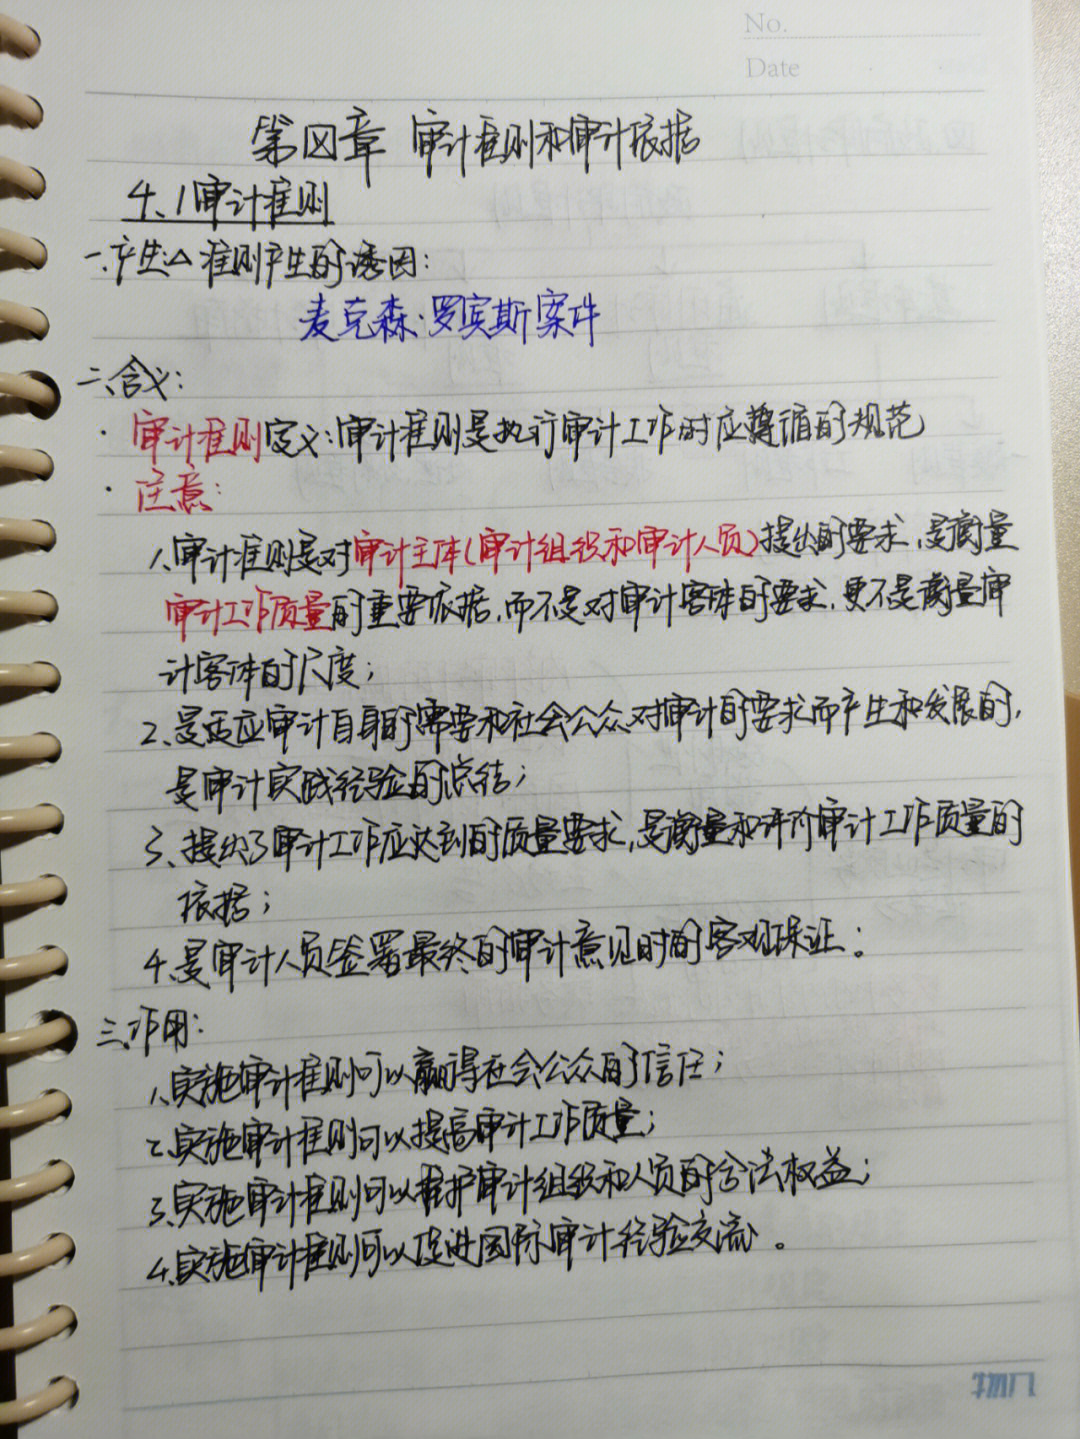 No.
Date
第四章 审计准则和审计依据
4.1审计准则
一.产生:△准则产生的诱因:
麦克森·罗宾斯案件
二、含义:
· 审计准则定义:审计准则是执行审计工作时应遵循的规范
· 注意:
1、审计准则是对审计主体(审计组织和审计人员)提出的要求,是衡量
审计工作质量的重要依据,而不是对审计客体的要求,更不是衡量审
计客体的尺度;
2、是适应审计自身的需要和社会公众对审计的要求而产生和发展的,
是审计实践经验的总结;
3、提出了审计工作应达到的质量要求,是衡量和评价审计工作质量的
依据;
4、是审计人员签署最终的审计意见时的客观保证。
三、作用:
1、实施审计准则可以赢得社会公众的信任;
2、实施审计准则可以提高审计工作质量;
3、实施审计准则可以维护审计组织和人员的合法权益;
4、实施审计准则可以促进国际审计经验交流。